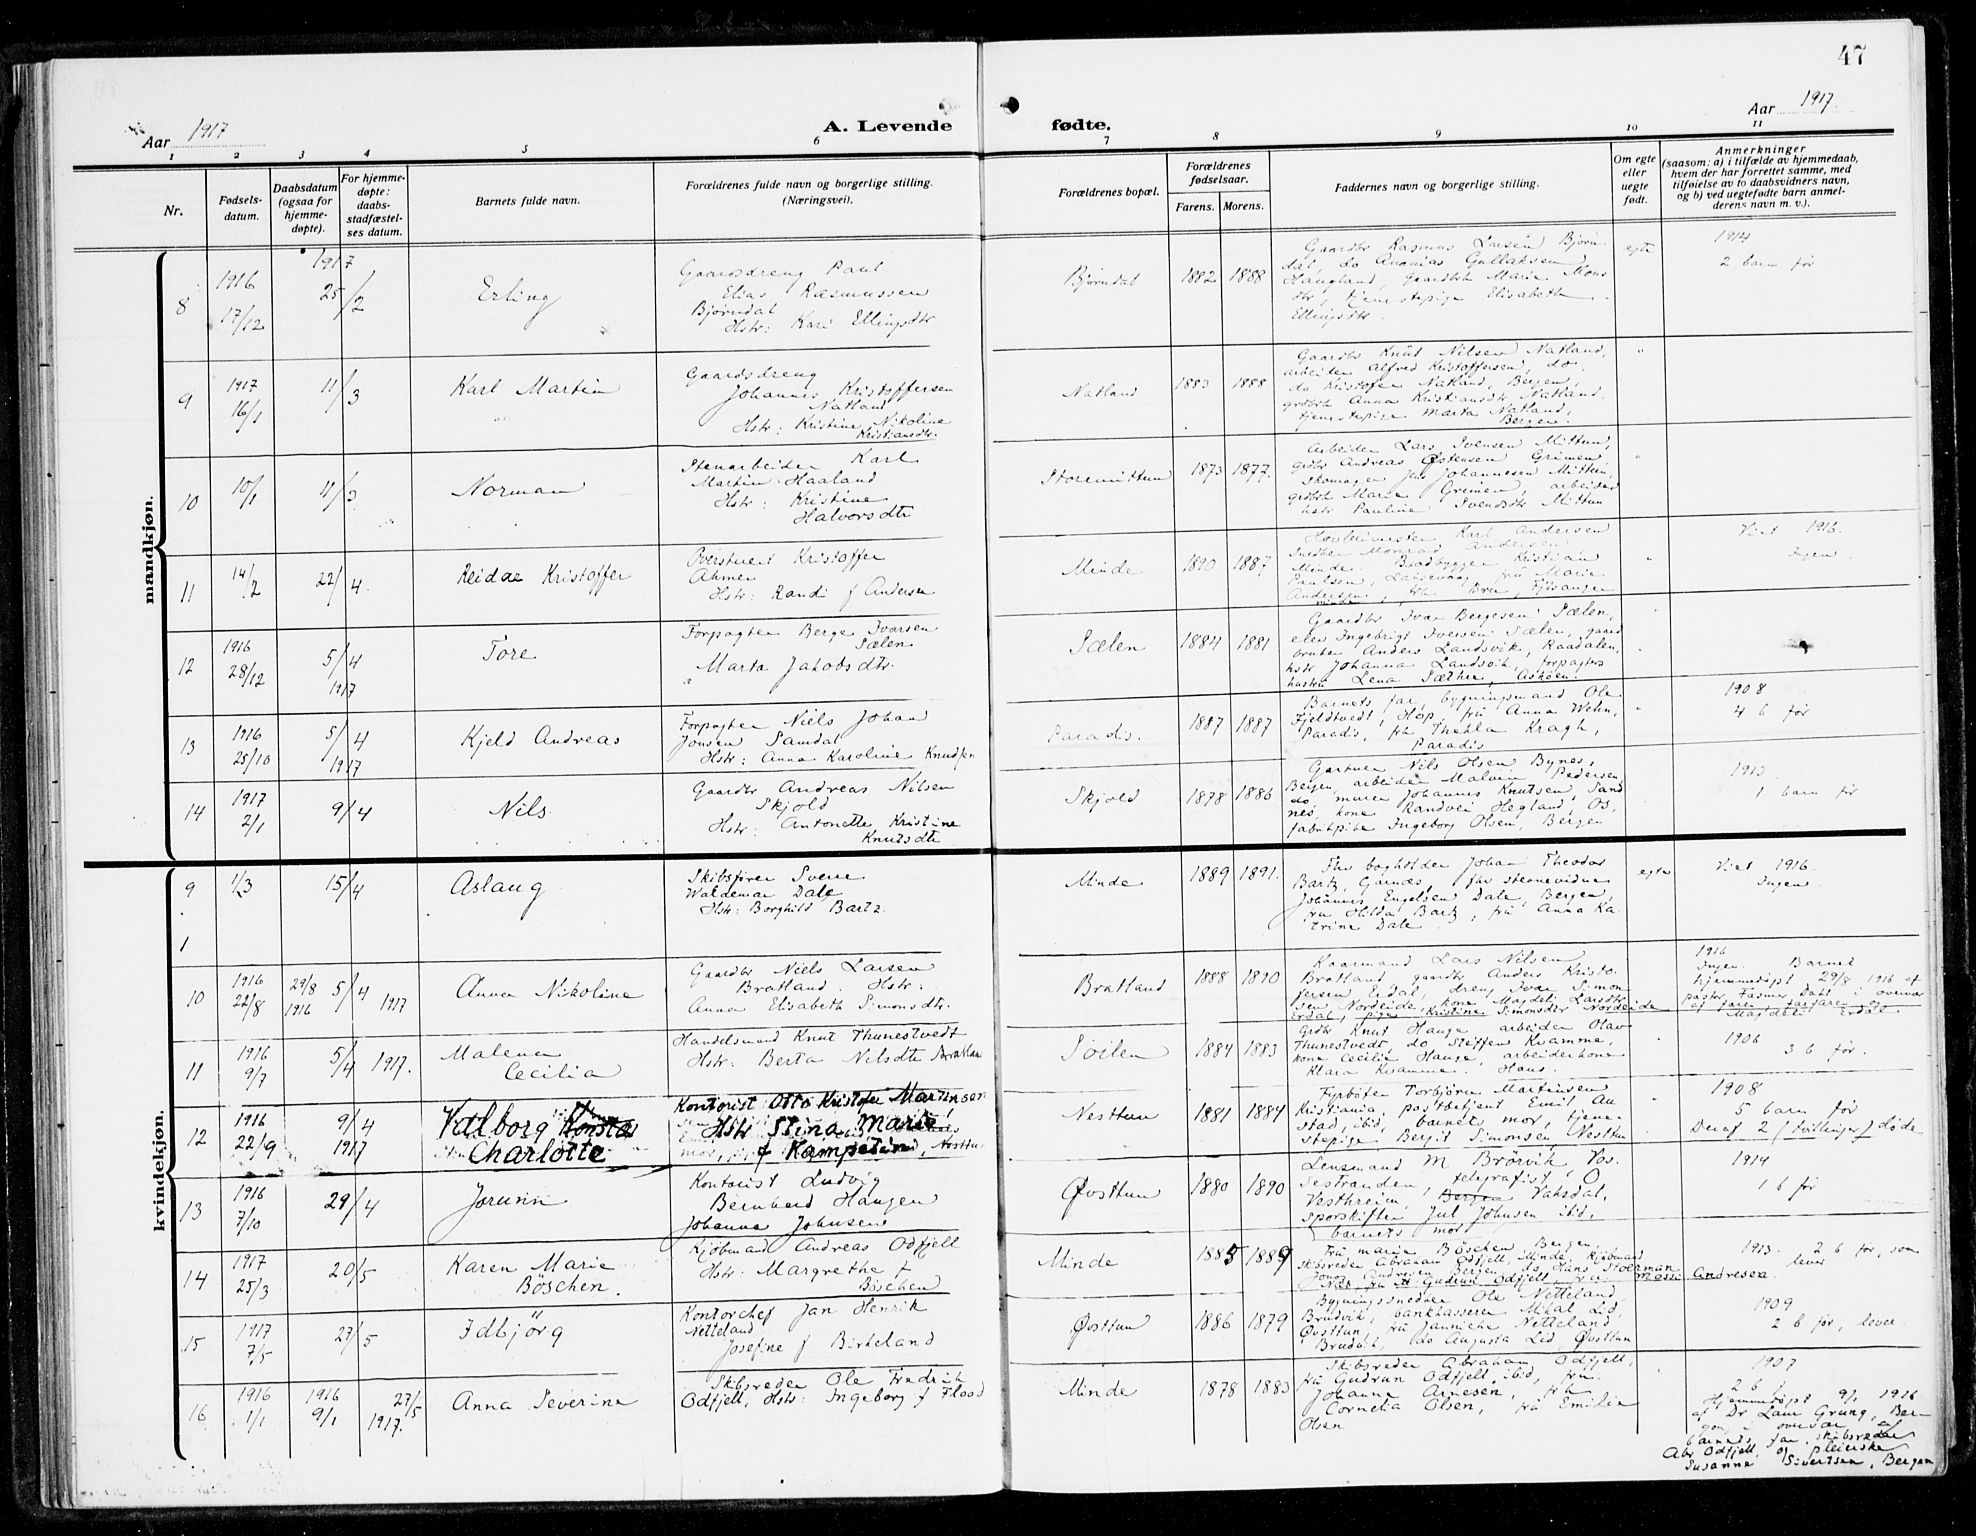 47
Aar 1917
A. Levende fødte.
Aar 1917.
1 2 3 4 5 6 7 8 9 10 11
Nr.
Fødsels-
datum.
Daabsdatum
(ogsaa for
hjemme-
døpte).
For hjemme-
døpte:
daabs-
stadfæstel-
ses datum.
Barnets fulde navn.
Forældrenes fulde navn og borgerlige stilling.
(Næringsvei).
Forældrenes bopæl.
Forældrenes
fødselsaar.
Farens. Morens.
Faddernes navn og borgerlige stilling.
Om egte
eller
uegte
født.
Anmerkninger
(saasom: a) i tilfælde av hjemmedaab,
hvem der har forrettet samme, med
tilføielse av to daabsvidners navn,
og b) ved uegtefødte barn anmel-
derens navn m. v.).
mandkjøn.
8
1916
17/12
1917
25/2
Erling
Gaardsdreng Paul
Elias Rasmussen
Bjørndal
Hstr: Kari Ellingsdtr
Bjørndal
1882 1888
Gaardbr Rasmus Larsen Bjørn-
dal, do Ananias Gullaksen
Haugland, gaardbrk Marie Mons
dtr, tjenestepige Elisabeth
Ellingsdtr.
egte
1914
2 barn før
9
1917
16/1
11/3
Karl Martin
Gaardsdreng
Johannes Kristoffersen
Natland
Hstr: Kristine Nikoline
Kristiansdtr.
Natland
1883 1888
Gaardbr Knut Nilsen Natland,
arbeider Alfred Kristoffersen, do,
do Kristofer Natland, Bergen,
grdbrk Anna Kristiansdtr Natland,
tjenestepige Marta Natland,
Bergen.
"
10
10/1
11/3
Norman
Stenarbeider Karl
Martin Haaland
Hstr: Kristine
Halvorsdtr
Storemittun
1873 1877.
Arbeider Lars Svensen Mittun,
grdbr Andreas Østensen Grimen,
skomager Jens Johannesen Mittun,
grdbrk Marie Grimen, arbeider
hstr Pauline Svendsdtr Mittun
"
11
14/2
22/4.
Reidar Kristoffer
Overstuert Kristoffer
Ahmer
Hstr: Randi f Andersen
Minde
1890 1887.
Karl Andersen
Snedker Monrad Andersen
Minde. Baadbygger Kristian
Paulsen, Laksevaag, frü Marie
Andersen, frk Bru, Fjøsanger
Minde
"
Viet 1916.
Ingen.
12
1916
28/12
5/4
1917
Tore
Forpagter Berge Ivarsen
Sælen
" Marta Jakobsdtr.
Sælen
1884 1881
Gaardbr Ivar Bergesen Sælen,
elev Ingebrigt Iversen Sælen, gaard
bruker Anders Landsvik, Kaadalen,
hstr Johanna Landsvik, forpagters
hustru Lena Sæthre, Askøen.
13
1916
25/10
5/4
1917
Kjeld Andreas
Forpagter Niels Johan
Jonsen Samdal
Hstr: Anna Karoline Knudsen
Paradis.
1887 1887
Barnets far, bygningsmand Ole
Fjeldtvedt, Hop, frü Anna Wehn,
Paradis, frk Thekla Kragh,
Paradis
"
1908
4 b før
14
1917
2/1
9/4
Nils
Gaardbr Andreas Nilsen
Skjold
Hstr: Antonette Kristine
Knutsdtr
Skjold
1878 1886
Gartner Nils Olsen Bynes,
Bergen, arbeider Malvin Pedersen
do, murer Johannes Knutsen, Sand
nes, kone Randvei Hegland, Os,
fabrikpike Ingeborg Olsen, Bergen
1913.
1 barn før
kvindekjøn.
9
1
1/3
15/4
Aslaug
Skibsfører Sverre
Waldemar Dale
Hstr: Borghild Bartz.
Minde
1889 1891.
Fhv bogholder Johan Theodor
Bartz, Garnæs, fhv
Johannes Engelsen Dale, Bergen,
fru Hilda Bartz, frü Anna Ka-
trine Dale.
egte
Viet 1916.
Ingen.
10
1916
22/8
29/8
1916
5/4 1917
Anna Nikoline
Gaardbr Niels Larsen
Bratland. Hstr:
Anna Elisabeth Simonsdtr.
Bratland
1888 1890
Kaarmand Lars Nilsen
Bratland gaardbr Anders Kristo-
fersen, Erdal, dreng Ivar Simon
sen Nordeide, kone Magdeli Larsdtr
Erdal, pige Kristine Simonsdtr Nordeide
1916
Ingen. Barnet
hjemmedøpt 29/8 1916 af
pastor Fasmer Dahl i overvær
af faren farfaren og
Magdeli Erdal.
11
1916
9/7
5/4 1917.
Malena
Cecilia
Handelsmand Knut Thunestvedt
Hstr: Berta Nilsdtr Bratland
Søilen
1884 1883
Grdbr Knut Hauge arbeider Olav
Thunestvedt, do Steffen Kvamme,
kone Cecilie Hauge, arbeiderkone
Klara Kvamme. Haus.
1906
3 b før.
12
1916
22/9
9/4
1917
Valborg Konstas
Charlotte
Kontorist Otto Kristofer Martinsen
Hstr Stina Marie
f Kampestin
Nesttun
1881 1884
Fyrbøter Torbjørn Martinsen
Kristiania, postbetjent Emil Au
stad, ibid, barnets mor, tjene-
stepige Bergit Simonsen, Nesttun
"
1908
5 barn før
Deraf 2 (tvillinger) døde
13
1916
7/10
29/4
Jorunn
Kontorist Ludvig
Bernhard Haugen
Johanna Johnsen
Øvsttun
1880 1890
Lensmand M Brørvik, Vos.
Sestranden, telegrafist O
Vestrheim, Bergen Vaksdal,
Sporskifter Jul Johnsen ibid,
barnets mor
1914
1 b før
14
1917
25/3
20/5
Karen Marie
Böschen.
Kjøbmand Andreas Odfjell
Hstr. Margrethe f
Böschen
Minde
1885 1889
Frü Marie Böschen Bergen,
Skibsreder Abraham Odfjell, Minde, Kjøbmand
Jonas Andresen Bergen, do Hans Stoerman
Næs, fru Gudrun Odfjell, Andresen
1913. 2 b før, som
lever
15
1917
7/5
27/5
Idbjörg
Kontorchef Jan Henrik
Netteland
Josefine f Birkeland
Øvsttun
1886 1879
Bygningssnedker Ole Netteland,
Brudvik, bankkasserer Mikal Lid,
Øvsttun, frü Jannicke Netteland
Brudvik, do Augusta Lid Øvsttun
1909
2 b før, lever
16
1916
1/1
1916
9/1
27/5
1917.
Anna Severine
Skibsreder Ole Fredrik
Odfjell, Hstr: Ingeborg f Flood
Minde
1878 1883
Skibsreder Abraham Odfjell,
frü Gudrun Odfjell, ibid, frü
Johanna Arnesen, frk
Cornelia Olsen, frü Emilie
Olsen
1907
2 b f
Hjemmedøpt 9/1 1916
af Dr Laur Grung, Ber-
gen, i overvær af
barnets far, skibsreder
Abr Odfjell, og pleierske
Susanne Sivertsen, Bergen